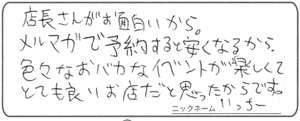 店長さんがお面白いから。
メルマガで予約すると安くなるから。
色々なおバカなイベントが楽しくて
とても良いお店だと思ったからです。
ニックネーム いっちー